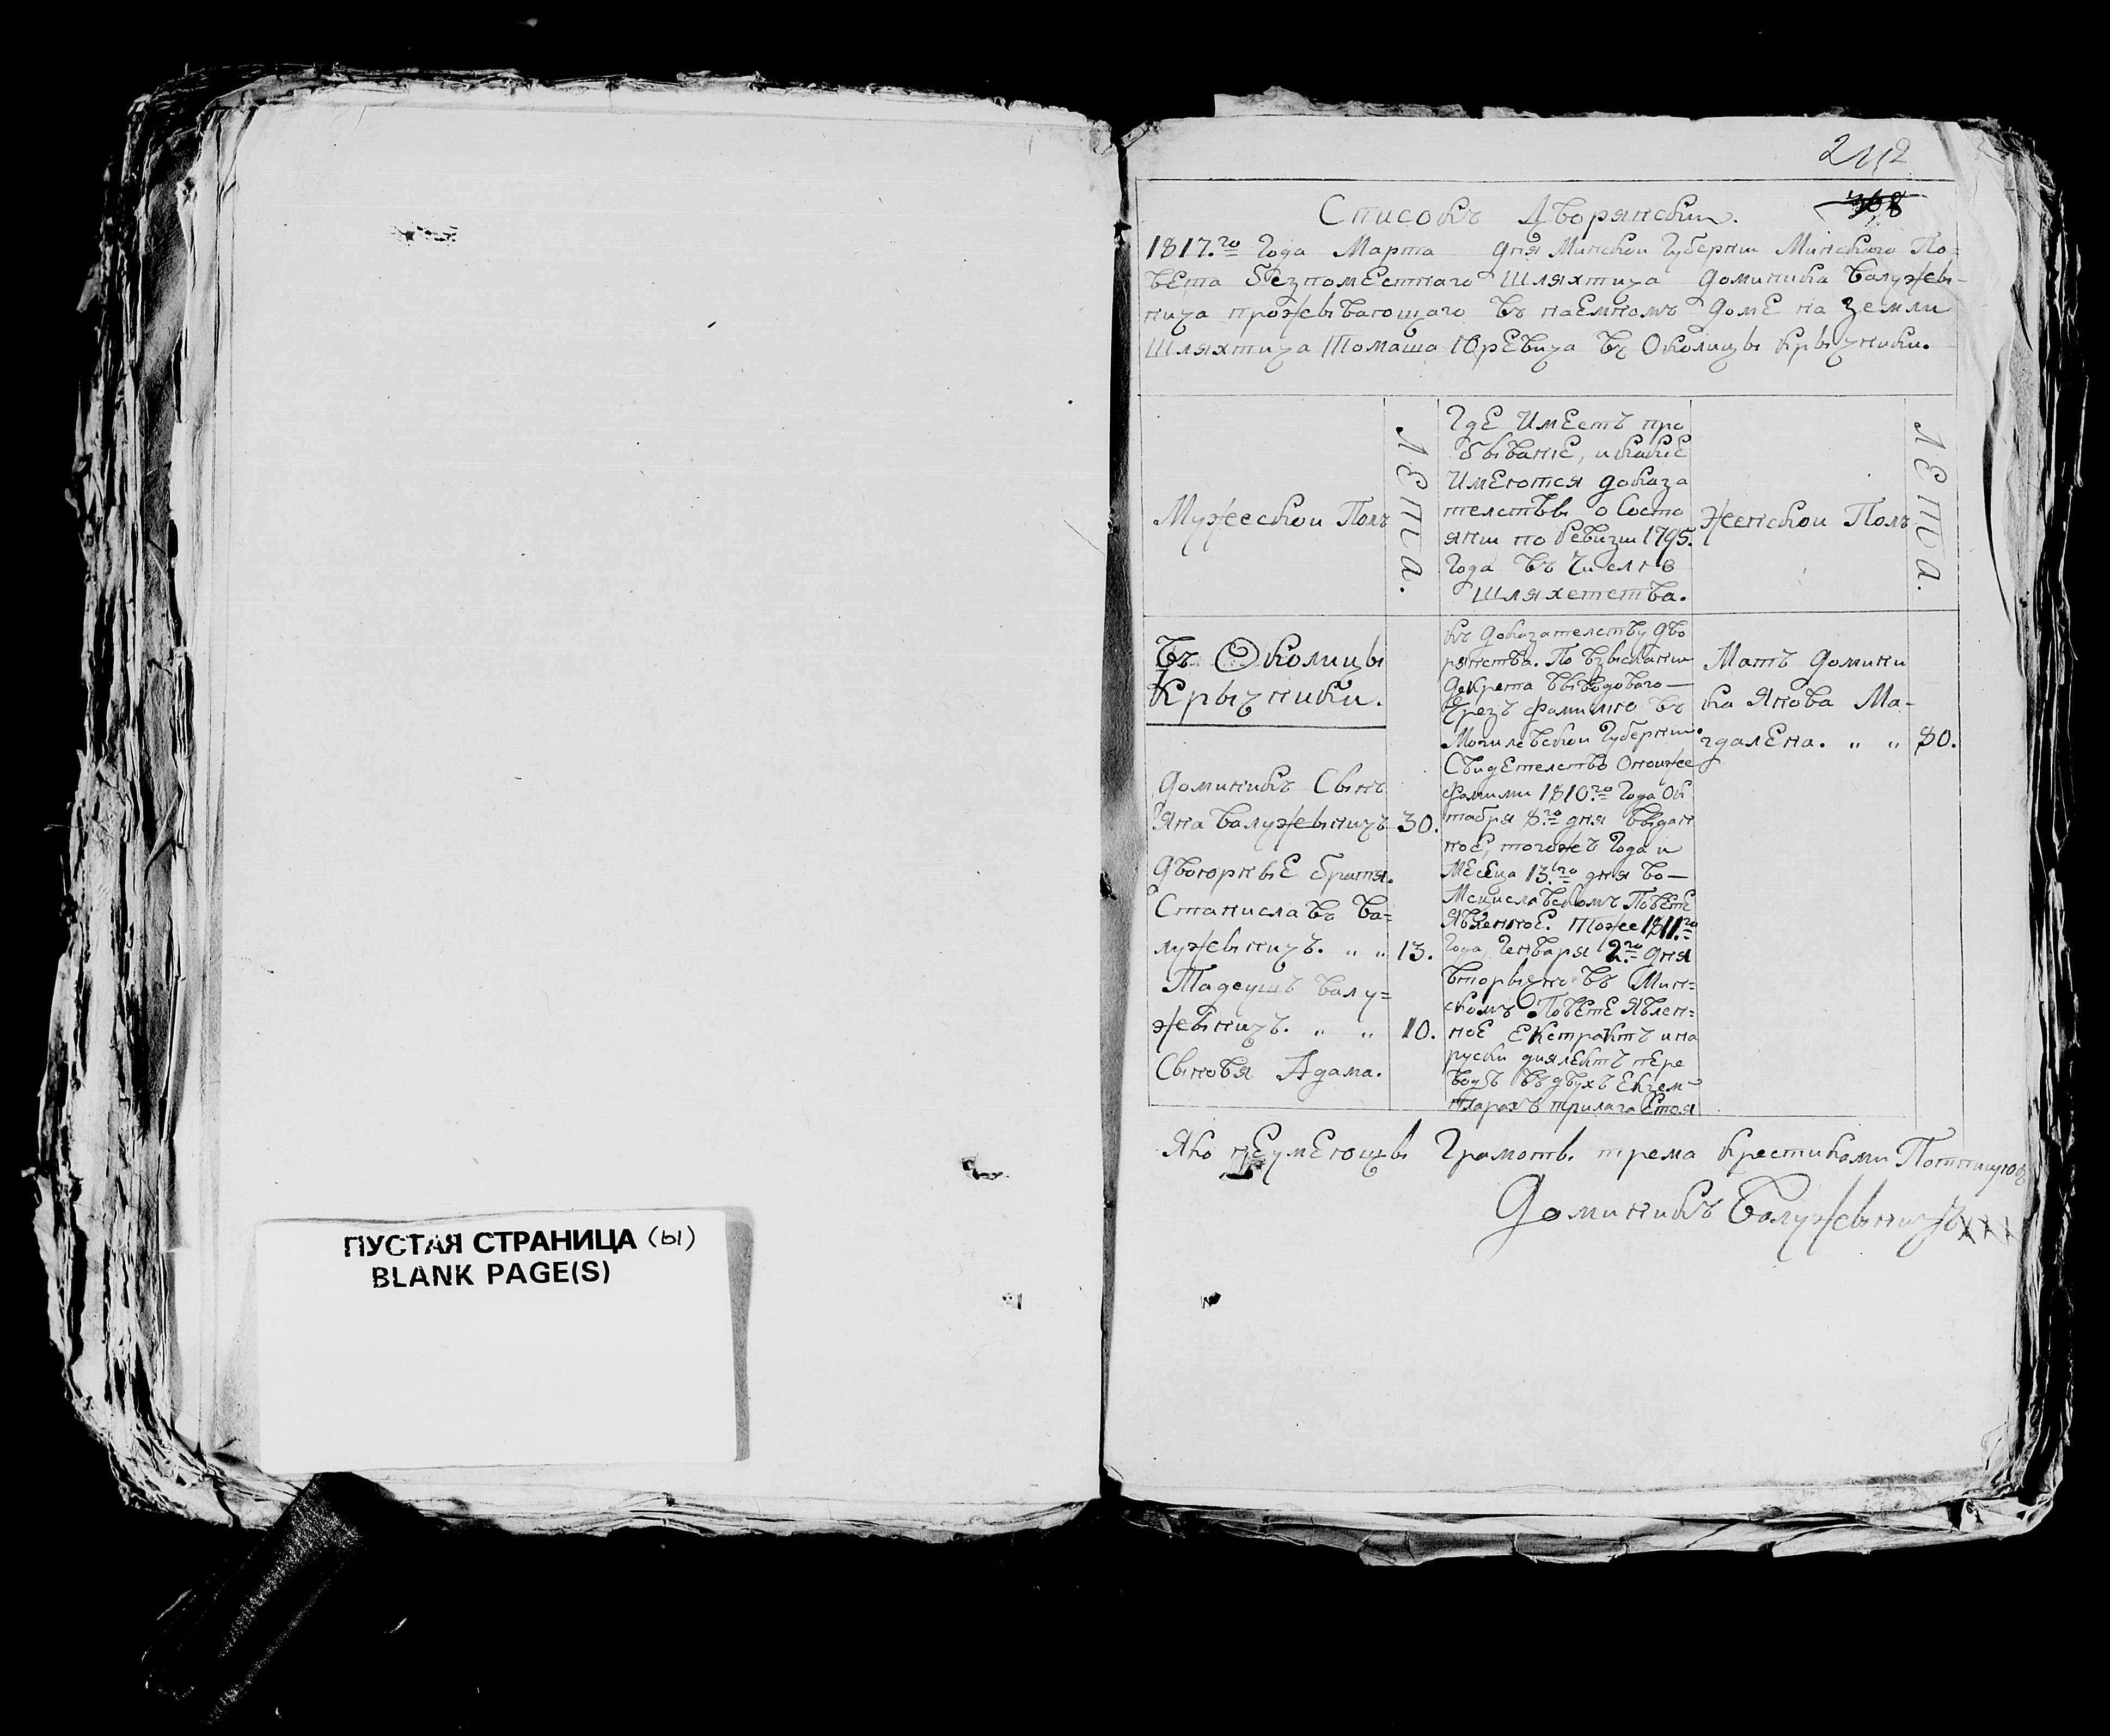 ПУСТАЯ СТРАНИЦА (ы)
BLANK PAGE(S)
212
368
Списокъ Дворянскии.
1817.го Года Марта дня Минскои Губернии Минскаго По=
вета безпоместнаго Шляхтича Доминика Валужы-
нича прожывающаго въ наемномъ доме на земли
Шляхтича Томаша Юревича въ Околицы Крычники.
Мужескои Полъ
Лета.
Где Имеетъ про
бывание, и какие
Имеются доказа
телствы о Состо
янии по Ревизии 1795.
Года въ Числе
Шляхетства.
Женскои Полъ
Лета.
Въ Околицы
Крычники.
Доминикъ Сынъ
Яна Валужыничъ 30.
Двоюрные братя.
Станиславъ Ва=
лужыничъ. „ „ 13.
Тадеушъ Валу=
жыничъ. „ „ 10.
Сыновя Адама.
Къ Доказателству Дво
рянства. По взыскании
Декрета выводоваго —
Чрезъ Фамилию въ
Могилевскои Губернии.
Свидетелство Оноиже
Фамилии 1810.го Года Ок
табря 8.го дня выдан
ное, тогожъ Года и
Месеца 13.го дня во —
Мсциславскомъ Повете
Явленное. Тоже 1811.го
Года, Генваря 2.го дня
вторычно въ Мин=
скомъ Повете Явлен=
ное Екстрактъ и на
руски диялектъ пере
водъ въ двухъ Екзем=
пларахъ прилагается
Матъ Домини
ка Янова Ма-
гдалена. „ „ 80.
Яко неумеющы Грамоты трема крестиками
Доминикъ Валужыничъ XXX